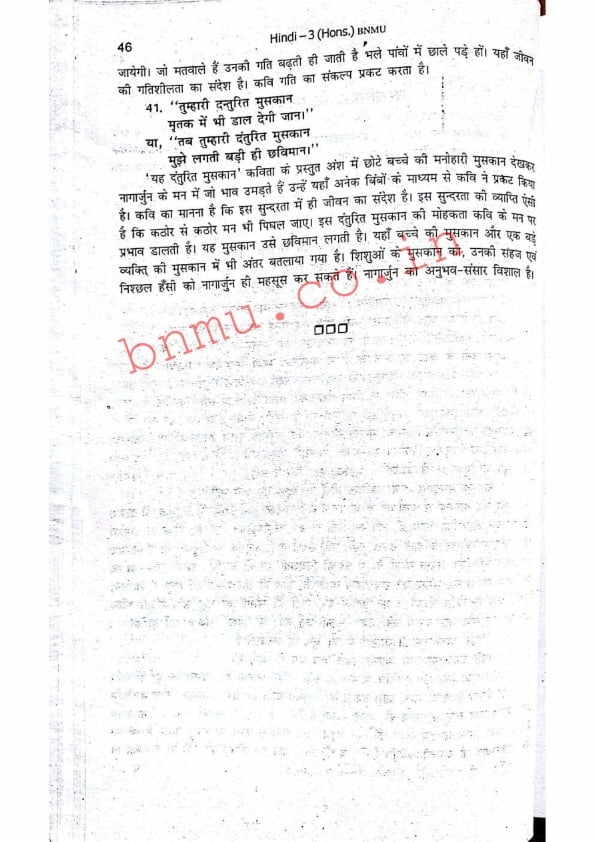 46
Hindi – 3 (Hons.) BNMU
जायेगी। जो मतवाले हैं उनकी गति बढ़ती ही जाती है भले पांवों में छाले पड़े हों। यहाँ जीवन
की गतिशीलता का संदेश है। कवि गति का संकल्प प्रकट करता है।
41. “तुम्हारी दन्तुरित मुसकान
मृतक में भी डाल देगी जान।”
या, “तब तुम्हारी दंतुरित मुसकान
मुझे लगती बड़ी ही छविमान।”
'यह दंतुरित मुसकान' कविता के प्रस्तुत अंश में छोटे बच्चे की मनोहारी मुसकान देखकर
नागार्जुन के मन में जो भाव उमड़ते हैं उन्हें यहाँ अनेक बिंबों के माध्यम से कवि ने प्रकट किया
है। कवि का मानना है कि इस सुन्दरता में ही जीवन का संदेश है। इस सुन्दरता की व्याप्ति ऐसी
है कि कठोर से कठोर मन भी पिघल जाए। इस दंतुरित मुसकान की मोहकता कवि के मन पर
प्रभाव डालती है। यह मुसकान उसे छविमान लगती है। यहाँ बच्चे की मुसकान और एक बड़े
व्यक्ति की मुसकान में भी अंतर बतलाया गया है। शिशुओं के मुसकान को, उनकी सहज एवं
निश्छल हँसी को नागार्जुन ही महसूस कर सकते हैं। नागार्जुन का अनुभव-संसार विशाल है।
bnmu.co.in